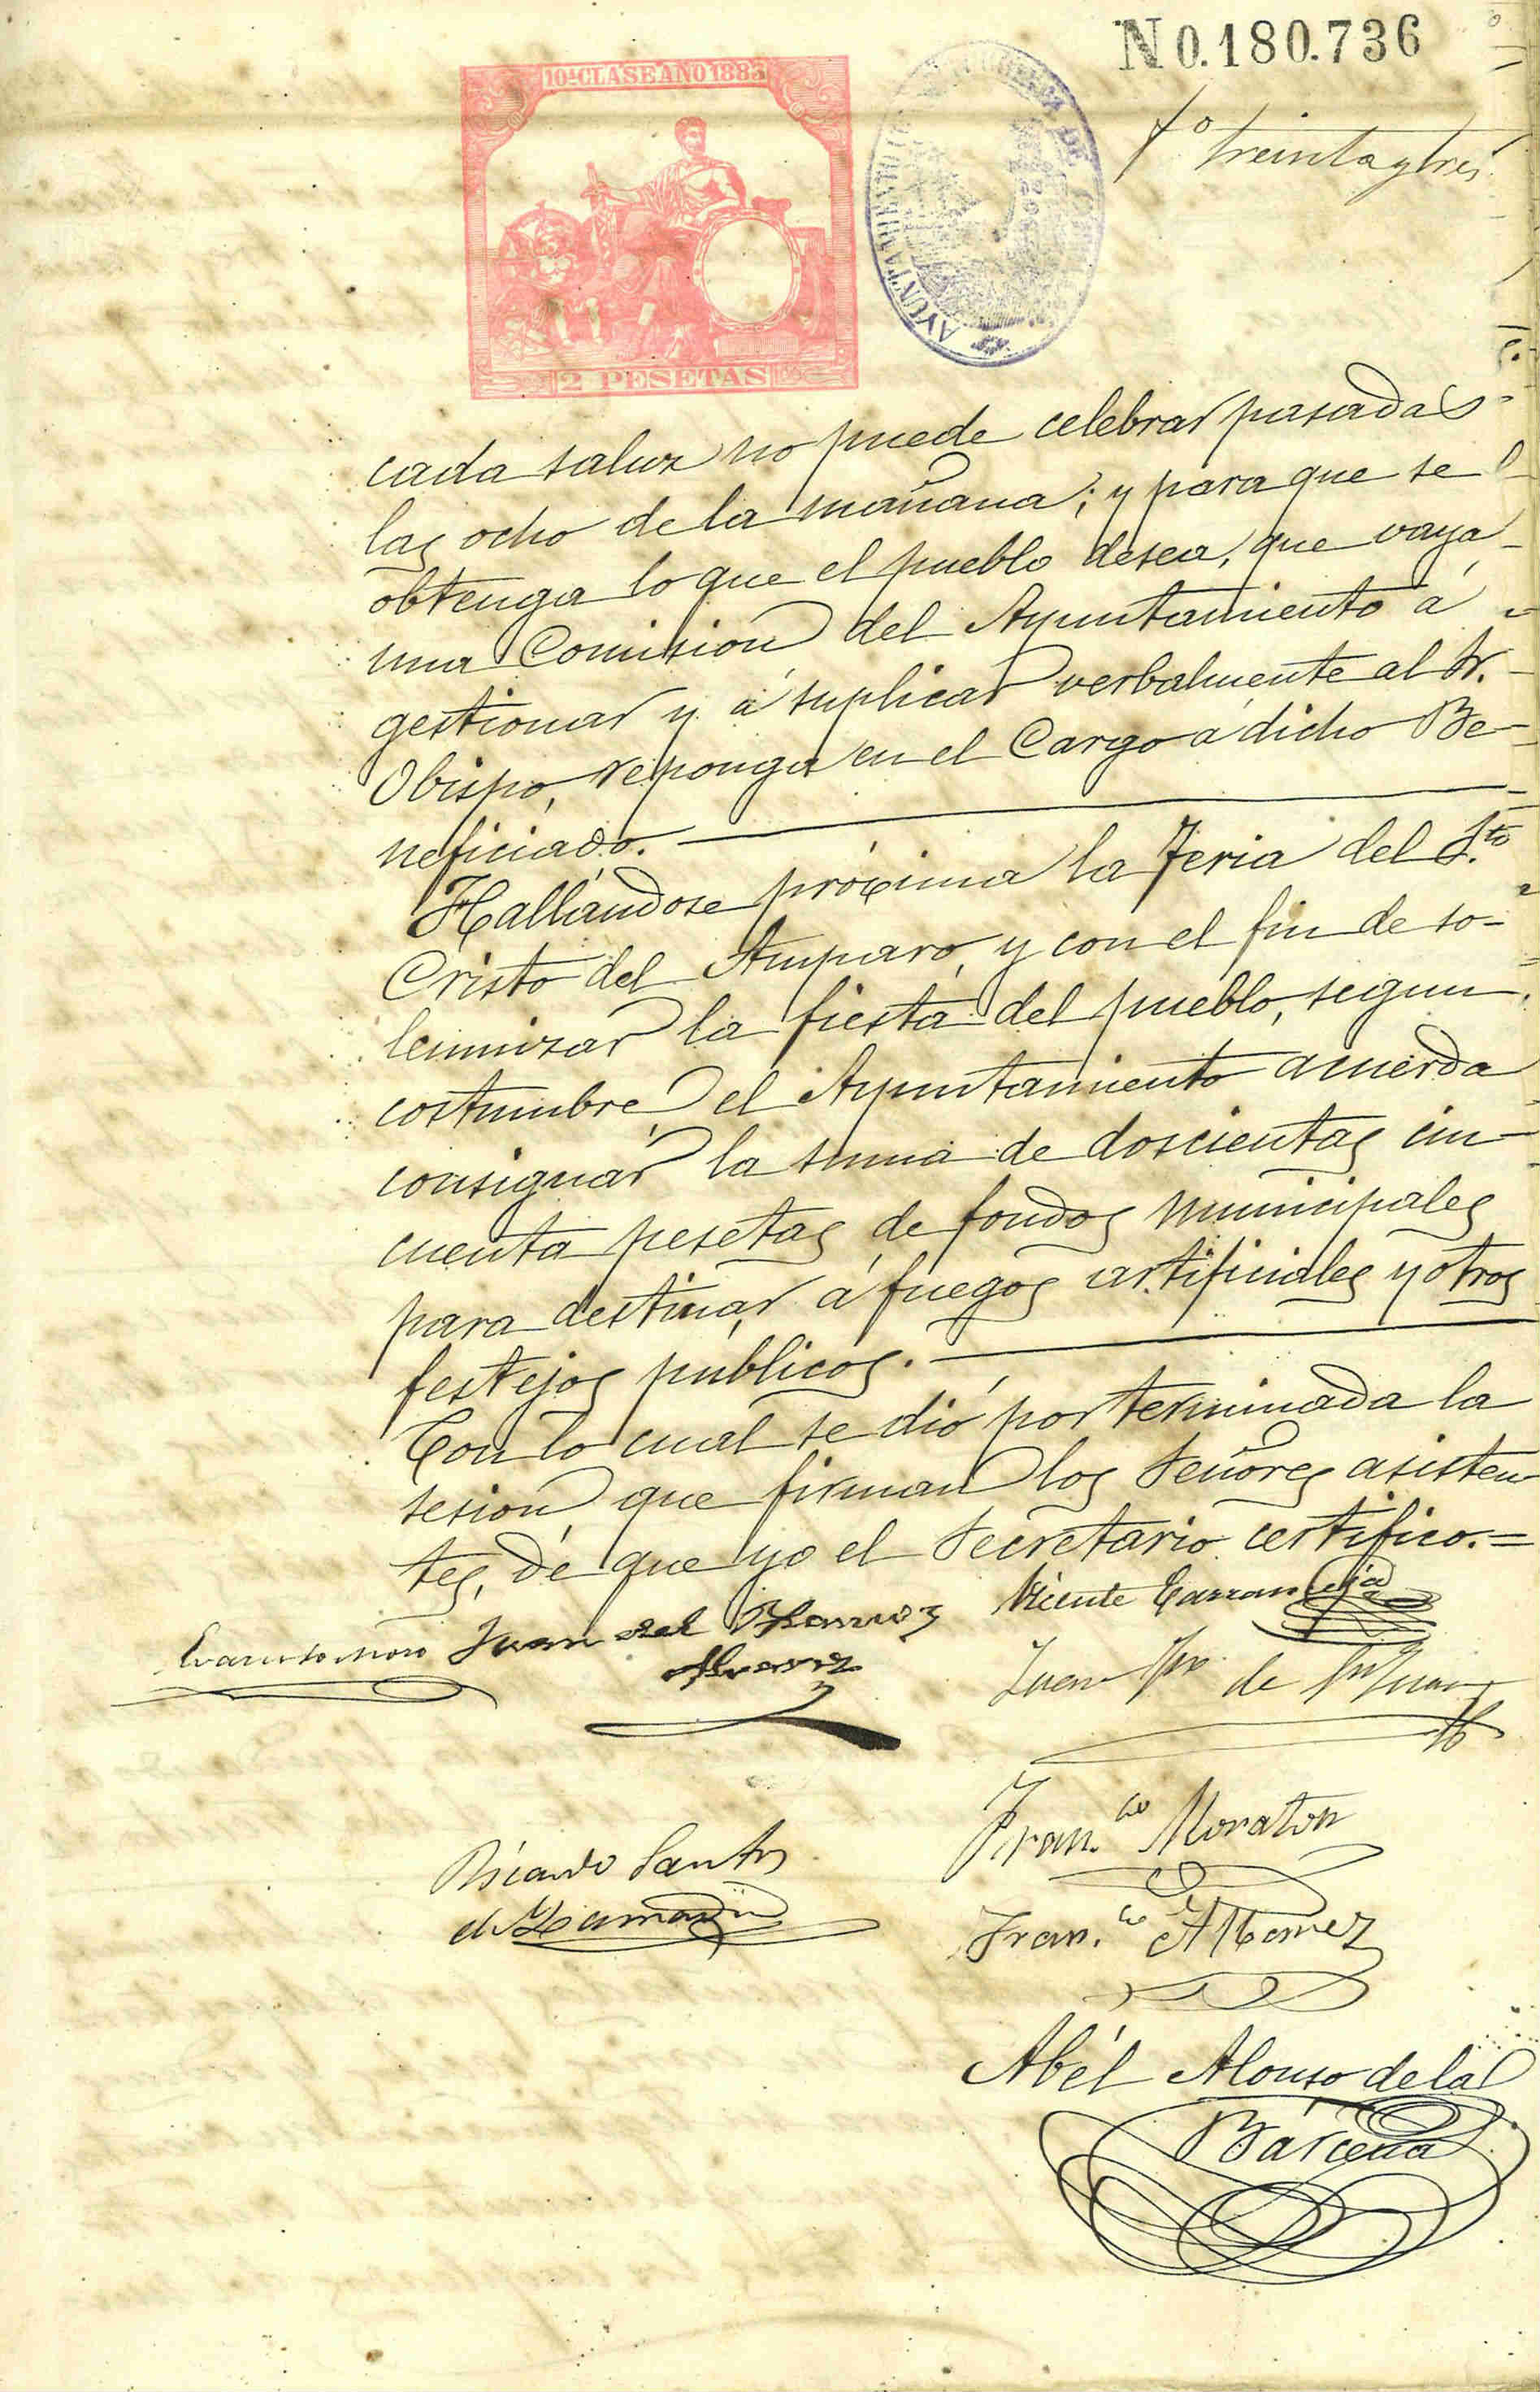 N 0.180.736
10ª CLASE AÑO 1885
fº treinta y tres
AYUNTAMIENTO DE
2 PESETAS
cada salud no puede celebrar pasadas
las ocho de la mañana; y para que se
obtenga lo que el pueblo desea, que vaya
una Comisión del Ayuntamiento á
gestionar y á suplicar verbalmente al Sr.
Obispo, reponga en el Cargo á dicho Be-
neficiado.
Hallándose próxima la Feria del Sto
Cristo del Amparo, y con el fin de so-
lemnizar la fiesta del pueblo, segun
costumbre, el Ayuntamiento acuerda
consignar la suma de doscientas cin-
cuenta pesetas de fondos municipales
para destinar á fuegos artificiales y otros
festejos públicos.
Con lo cual se dió por terminada la
sesion que firman los Señores asisten
tes, de que yo el Secretario certifico.=
Evaristo Moro Juan del Barrio Vicente Carranceja
Alvarez
Juan de Sn Juan
Fran.co Moraton
Ricardo Santos
de Zamora
Fran.co
Abél Alonso de la
Bárcena